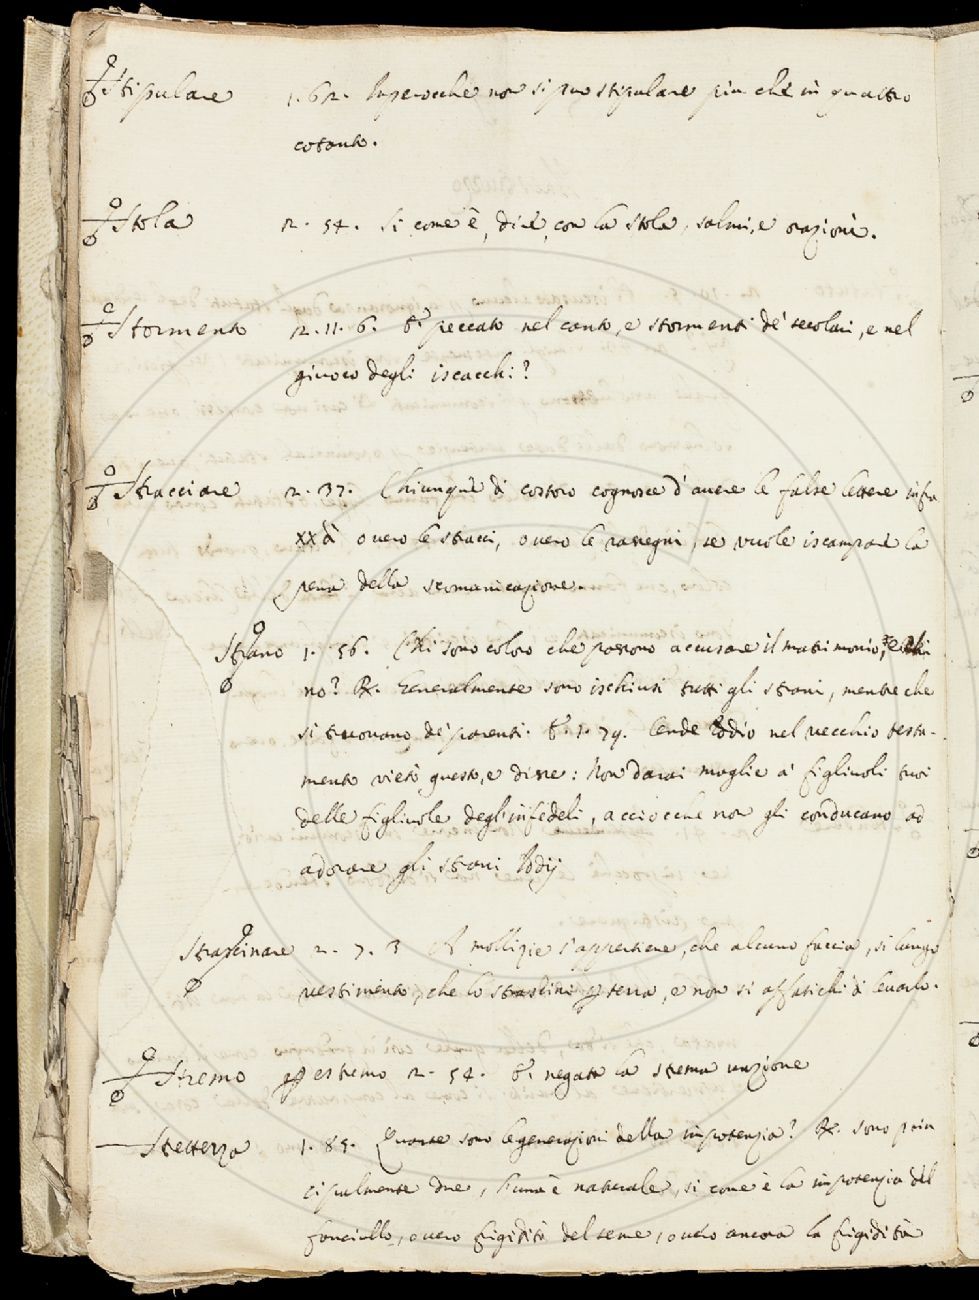 Stipulare 1. 62. Imperocche non si puo stipulare piu che in quattro
cotanto.
Stola 2. 54. Si come è, dice, con la stola, salmi, e orazioni.
Stormento 2. 11. 6. E peccato nel canto, e stormenti de' secolari, e nel
giuoco degli iscacchi?
Stracciare 2. 37. Chiunque di costoro cognosce d'avere le false lettere infra
XX dì overo le stracci, overo le rassegni, se vuole iscampare la
pena della scomunicazione.
Strano 1. 56. Chi sono coloro che possono accusare il matrimonio, e chi
no? R. Generalmente sono ischiusi tutti gli strani, mentre che
si truovano de' parenti. E. 1. 79. Onde Iddio nel vecchio testa-
mento vietò questo, e disse: Non darai moglie a' figliuoli tuoi
delle figliuole degl'infedeli, acciocche non gli conducano ad
adorare gli strani Iddij
Strascinare 2. 7. 3 A mollizie s'appertiene, che alcuno faccia, si lungo
vestimento, che lo strascini per terra, e non si affatichi di levarlo.
Stremo per estremo 2. 54. E negata la strema unzione
Strettezza 1. 85. Quante sono le generazioni della impotenzia? R. sono prin
cipalmente due, l'una è naturale, si come è la impotenzia del
fanciullo, overo frigidità del seme, overo ancora la frigidità